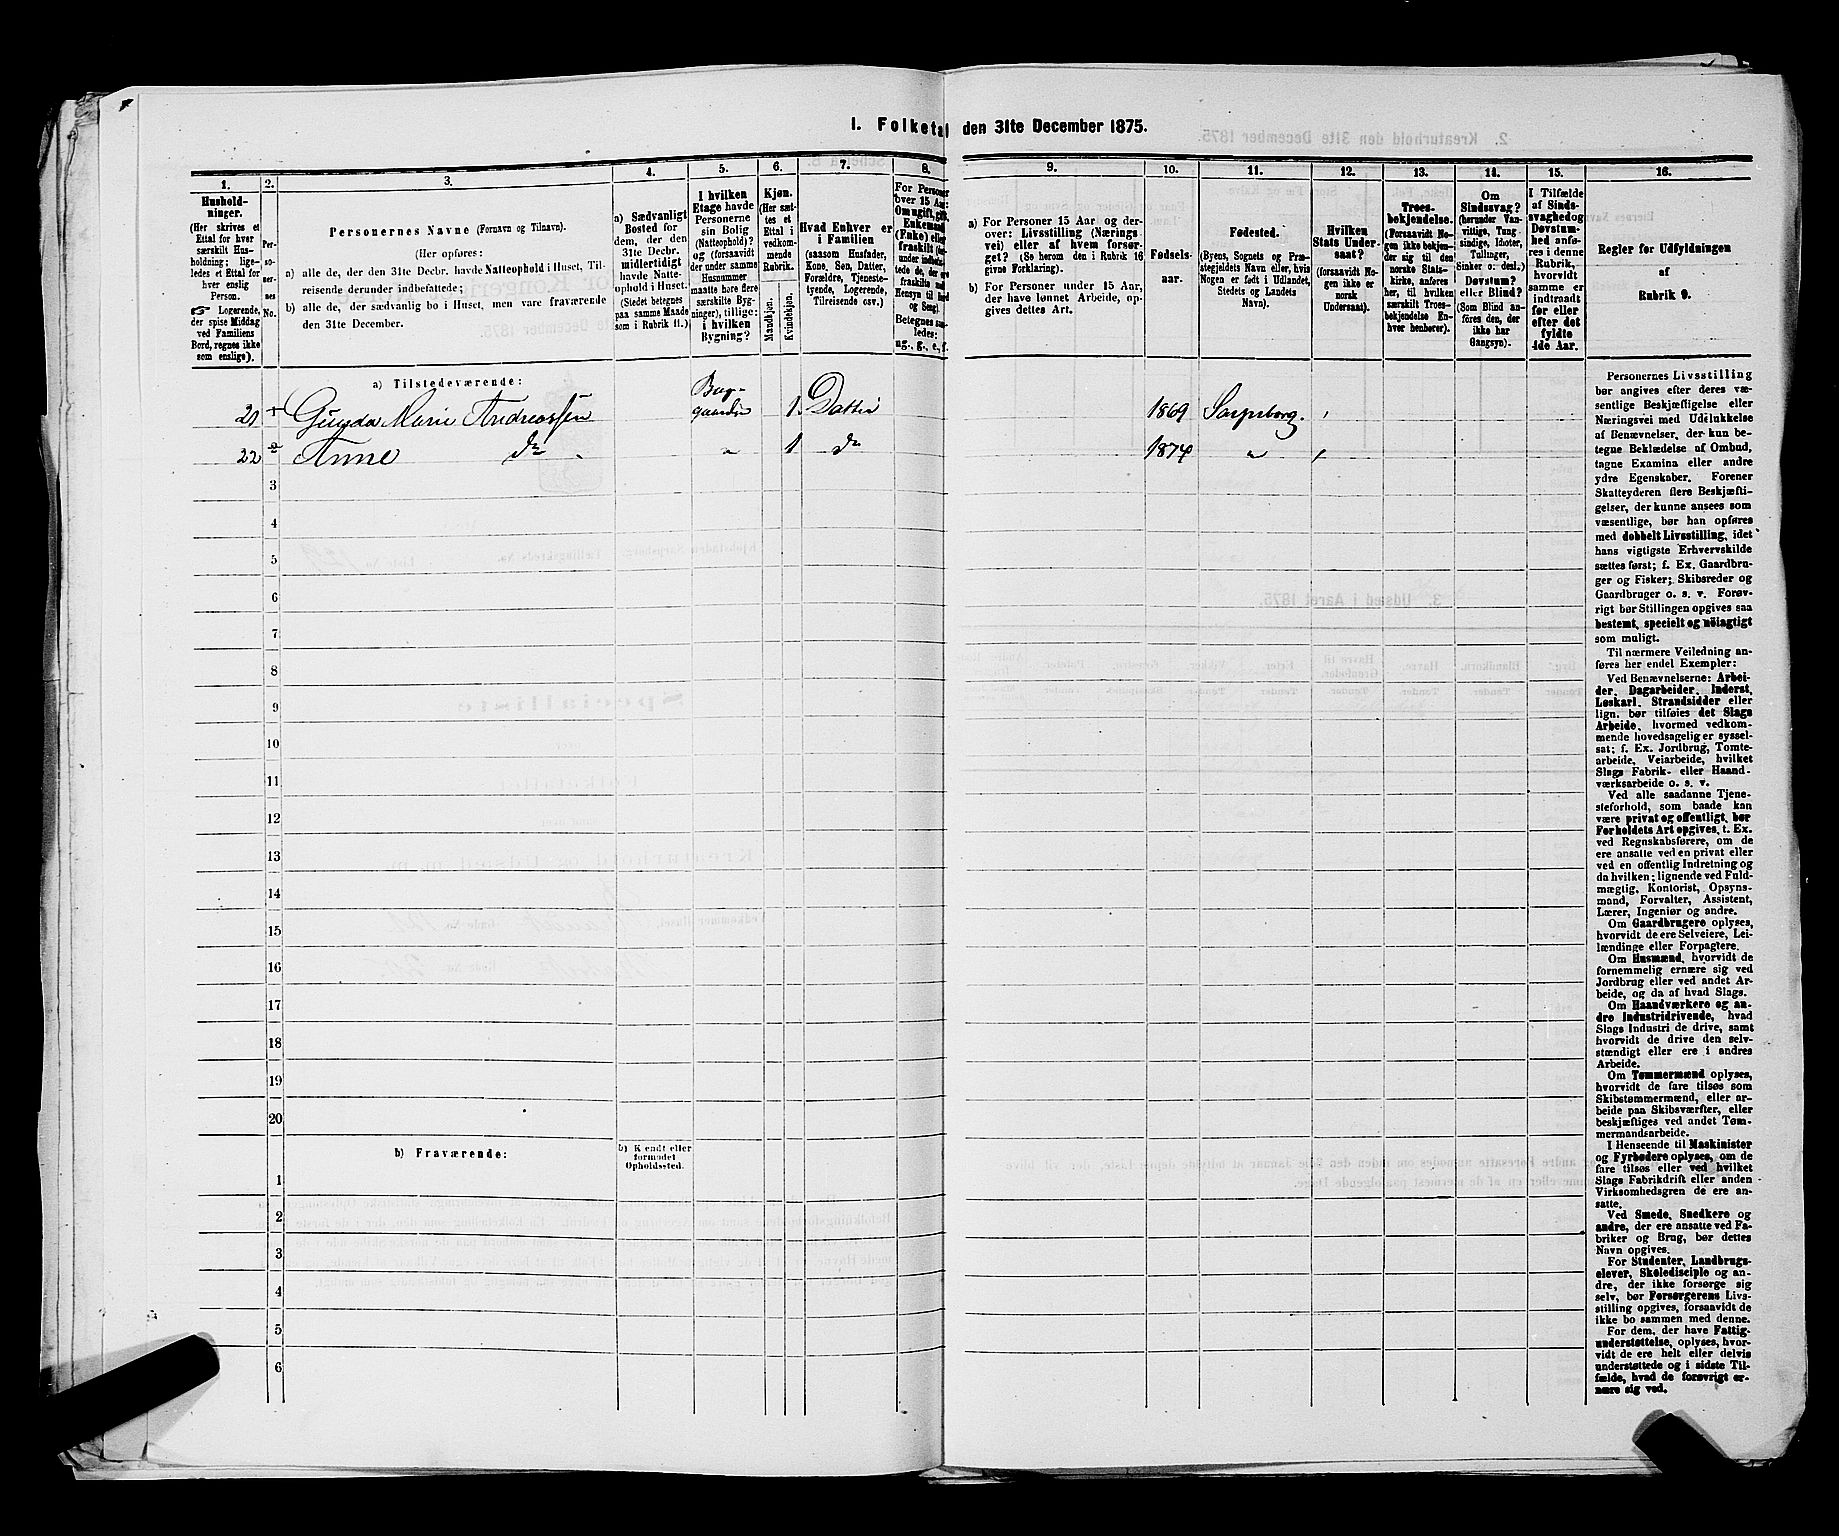 I. Folketal den 31te December 1875.
1. 2. 3. 4. 5. 6. 7. 8. 9. 10. 11. 12. 13. 14. 15. 16.
Husholdninger.
(Her skrives et
Ettal for hver
særskilt Hus-
holdning; lige-
ledes et Ettal for
hver enslig
Person.
Logerende,
der spise Middag
ved Familiens
Bord, regnes ikke
som enslige).
Per-
so-
ner-
nes
No.
Personernes Navne (Fornavn og Tilnavn).
(Her opføres:
a) alle de, der den 31te Decbr. havde Natteophold i Huset, Til-
reisende derunder indbefattede;
b) alle de, der sædvanlig bo i Huset, men vare fraværende
den 31te December.
a) Sædvanligt
Bosted for
dem, der den
31te Decbr.
midlertidigt
havde Natte-
ophold i Huset.
(Stedet betegnes
paa samme Maade
som i Rubrik 11.)
I hvilken
Etage havde
Personerne
sin Bolig
(Natteophold)?
og (forsaavidt
der under samme
Husnummer
maatte høre flere
særskilte Byg-
ninger), tillige:
i hvilken
Bygning?
Kjøn.
(Her sæt-
tes et
Ettal i
vedkom-
mende
Rubrik.
Mandkjøn.
Kvindekjøn.
Hvad Enhver er
i Familien
(saasom Husfader,
Kone, Søn, Datter,
Forældre, Tjeneste-
tyende, Logerende,
Tilreisende osv.)
For Personer
over 15 Aar:
Om ugift, gift,
Enkemand
(Enke) eller
fraskilt
Betegnes saa-
ledes:
ug., g., e., f.
a) For Personer 15 Aar og der-
over: Livsstilling (Nærings-
vei) eller af hvem forsør-
get? (Se herom den i Rubrik 16
givne Forklaring).
b) For Personer under 15 Aar,
der have lønnet Arbeide, op-
gives dettes Art.
Fødsels-
aar.
Fødested.
(Byens, Sognets og Præ-
stegjeldets Navn eller, hvis
Nogen er født i Udlandet,
Stedets og Landets
Navn).
Hvilken
Stats Under-
saat?
(forsaavidt No-
gen ikke er
norsk
Undersaat).
Troes-
bekjendelse.
(Forsaavidt No-
gen ikke bekjen-
der sig til den
norske Stats-
kirke, anføres
her, til hvilken
særskilt Troes-
bekjendelse En-
hver henhører).
Om
Sindssvag?
(herunder Van-
vittige, Tung-
sindige, Idioter,
Tullinger,
Sinker o: desl.)
Døvstum?
eller Blind?
(Som Blind an-
føres den, der
ikke har
Gangsyn).
I Tilfælde
af Sinds-
svaghed og
Døvstum-
hed anfø-
res i denne
Rubrik,
hvorvidt
samme er
indtraadt
før eller
efter det
fyldte
4de Aar.
Regler for Udfyldningen
af
Rubrik 9.
a) Tilstedeværende:
21 Gunda Marie Andreassen Bag-gaarden 1. Datter 1869 Sarpsborg.
22 2 Anne do " 1 do 1874 "
3
4
5
6
7
8
9
10
11
12
13
14
15
16
17
18
19
20
b) Fraværende:
b) Kjendt eller
formodet
Opholdssted.
1
2
3
4
5
6
Personernes Livsstilling
bør angives efter deres væ-
sentlige Beskjæftigelse eller
Næringsvei med Udelukkelse
af Benævnelser, der kun be-
tegne Beklædelse af Ombud,
tagne Examina eller andre
ydre Egenskaber. Forener
Skatteyderen flere Beskjæfti-
gelser, der kunne ansees som
væsentlige, bør han opføres
med dobbelt Livsstilling, idet
hans vigtigste Erhvervskilde
sættes først; f. Ex. Gaardbru-
ger og Fisker; Skibsreder og
Gaardbruger o. s. v. Forøv-
rigt bør Stillingen opgives saa
bestemt, specielt og nöiagtigt
som muligt.
Til nærmere Veiledning an-
føres her endel Exempler:
Ved Benævnelserne: Arbei-
der, Dagarbeider, Inderst,
Løskarl, Strandsidder eller
lign. bør tilføies det Slags
Arbeide, hvormed vedkom-
mende hovedsagelig er syssel-
sat; f. Ex. Jordbrug, Tomte-
arbeide, Veiarbeide, hvilket
Slags Fabrik- eller Haand-
værksarbeide o. s. v.
Ved alle saadanne Tjene-
steforhold, som baade kan
være privat og offentligt, bør
Forholdets Art opgives, t. Ex.
ved Regnskabsførere, om de
ere ansatte ved en privat eller
ved en offentlig Indretning og
da hvilken; lignende ved Fuld-
mægtig, Kontorist, Opsyns-
mand, Forvalter, Assistent,
Lærer, Ingeniør og andre.
Om Gaardbrugere oplyses,
hvorvidt de ere Selveiere, Lei-
lændinge eller Forpagtere.
Om Husmænd, hvorvidt de
fornemmelig ernære sig ved
Jordbrug eller ved andet Ar-
beide, og da af hvad Slags.
Om Haandværkere og an-
dre Industridrivende, hvad
Slags Industri de drive, samt
hvorvidt de drive den selv-
stændigt eller ere i andres
Arbeide.
Om Tømmermænd oplyses,
hvorvidt de fare tilsøs som
Skibstømmermænd, eller ar-
beide paa Skibsværfter, eller
beskjæftiges ved andet Tøm-
mermandsarbeide.
I Henseende til Maskinister
og Fyrbødere oplyses, om de
fare tilsøs eller ved hvilket
Slags Fabrikdrift eller anden
Virksomhedsgren de ere an-
satte.
Ved Smede, Snedkere og
andre, der ere ansatte ved Fa-
briker og Brug, bør dettes
Navn opgives.
For Studenter, Landbrugs-
elever, Skoledisciple og an-
dre, der ikke forsørge sig
selv, bør Forsørgerens Livs-
stilling opgives, forsaavidt de
ikke bo sammen med denne.
For dem, der have Fattig-
understøttelse, oplyses, hvor-
vidt de ere helt eller delvis
understøttede og i sidste Til-
fælde, hvad de forøvrigt er-
nære sig ved.